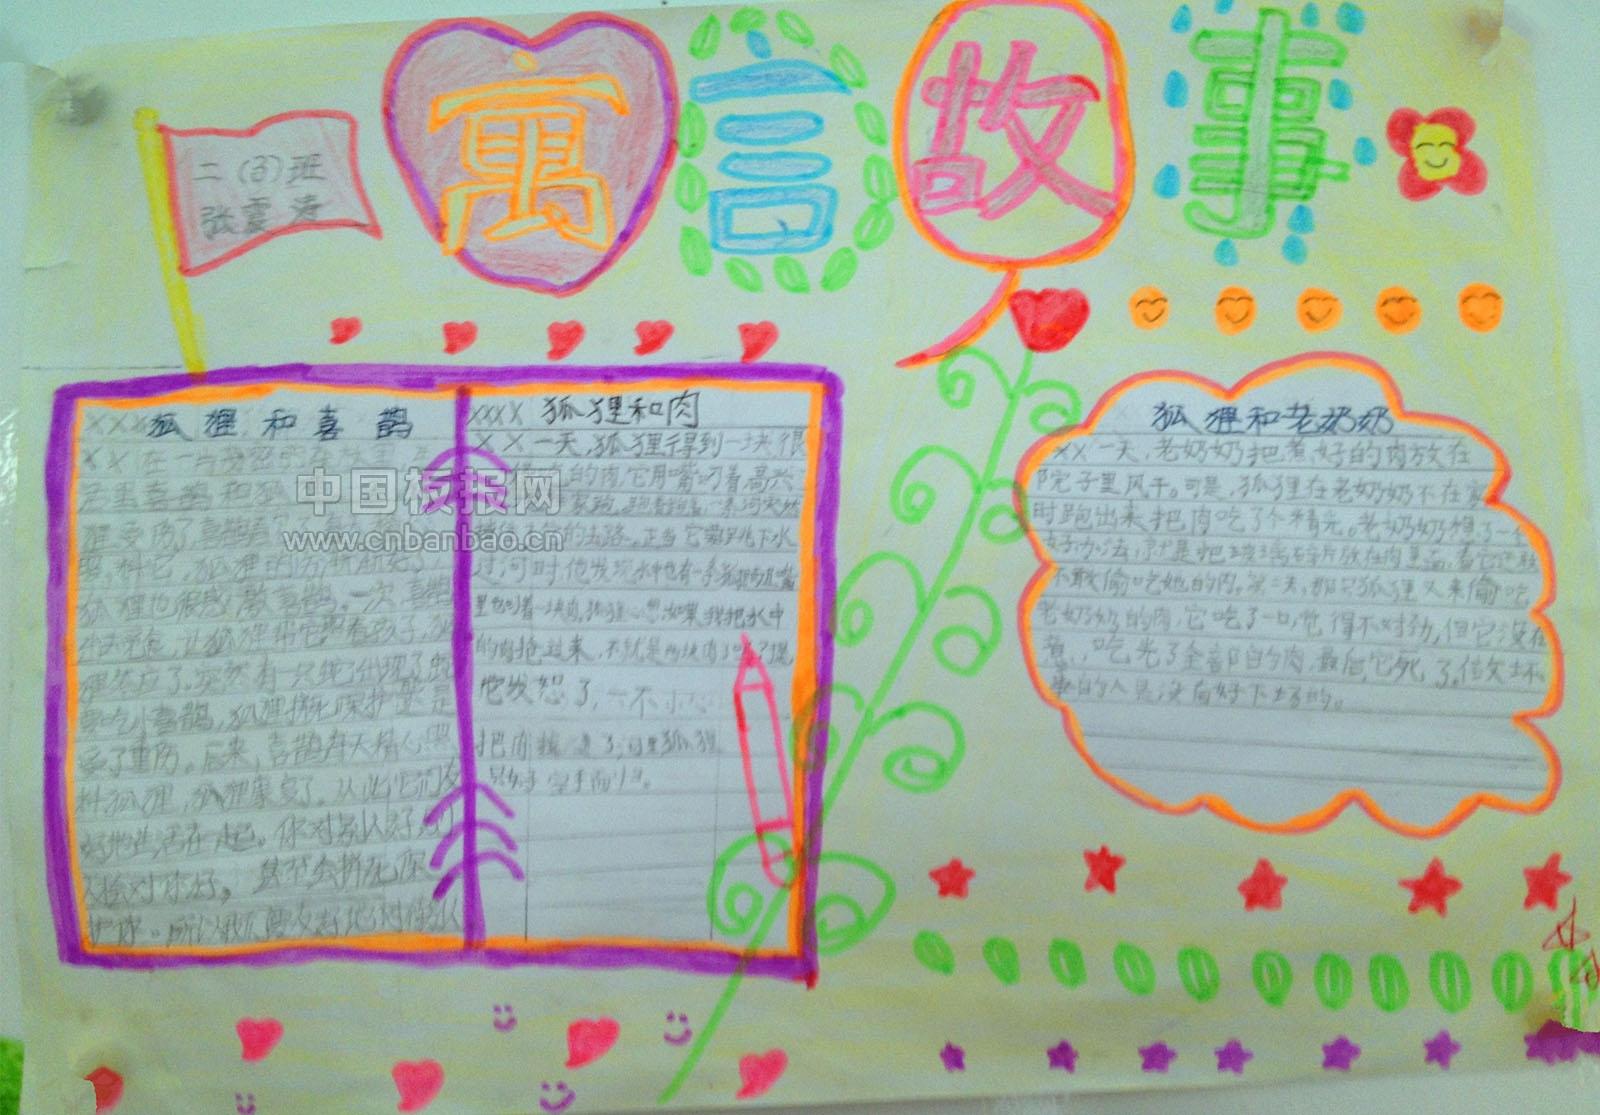 寓言故事
二(3)班
张震涛
XXX狐狸和喜鹊
狐狸也很感激喜鹊。一次喜鹊
狸答应了。突然有一只蛇出现了蛇
要吃小喜鹊,狐狸拼死保护
受了重伤。后来,喜鹊每天精心照
料狐狸,狐狸康复了。从此它们友
好地生活在一起。你对别人好,别
人会对你好。甚至会拼死保
护你。所以我们要友好地对待别人
XXXX狐狸和肉
XX一天,狐狸得到一块很
的肉,它用嘴叼着,高兴
家跑,跑着跑着,一条河突然
挡住了它的去路。正当它要跳下水
过河时,他发现水中也有一条狐狸
里也叼着一块肉,狐狸心想:如果我把水中
的肉抢过来,不就是两块肉了吗?
它发怒了,一不小心
把肉掉进了河里狐狸
只好空手而归。
狐狸和老奶奶
XX一天,老奶奶把煮好的肉放在
院子里风干。可是,狐狸在老奶奶不在家
时跑出来把肉吃了个精光。老奶奶想了一个
好办法,就是把玻璃碎片放在肉里面,看它还敢
不敢偷吃她的肉。第二天,那只狐狸又来偷吃
老奶奶的肉,它吃了一口,觉得不对劲,但它没在
意,吃光了全部的肉,最后它死了。做坏
事的人是没有好下场的。
中国板报网
www.cnbanbao.cn